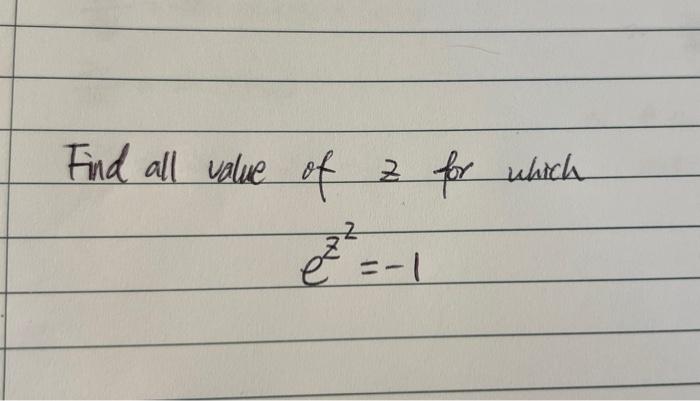 Find all value of z for which
e^{z^2} = -1